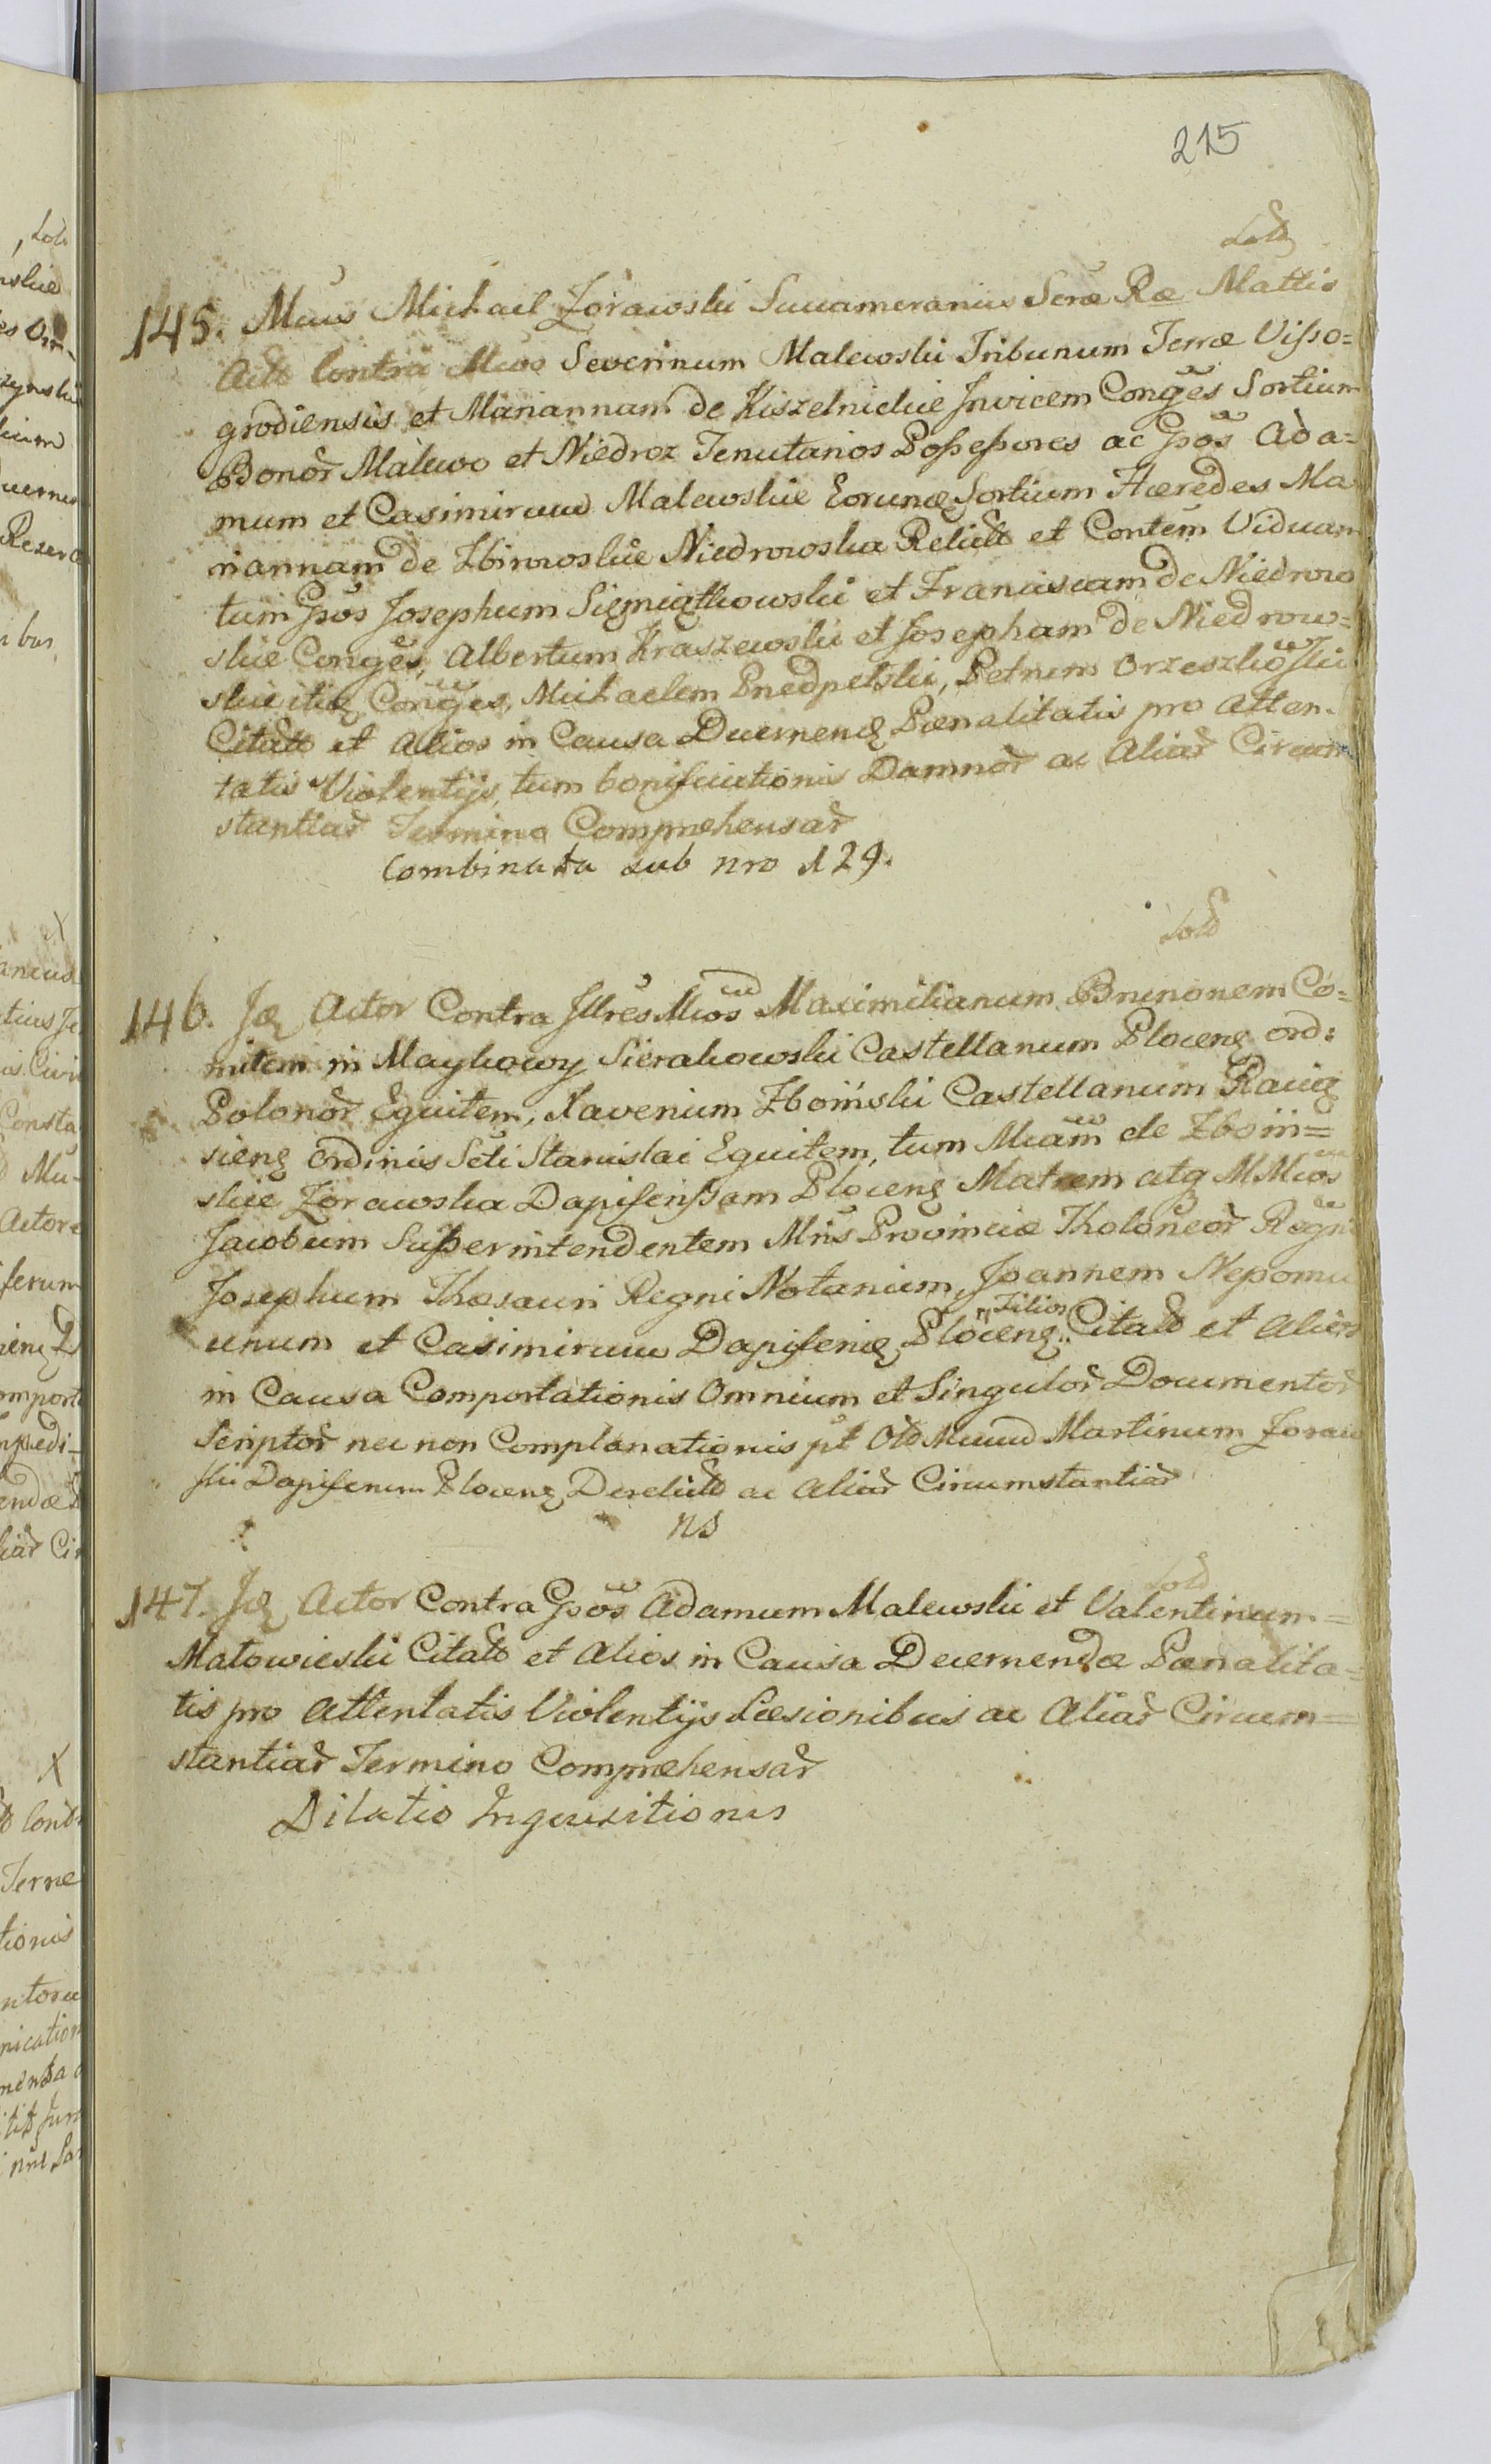 215
Sold
145. Mcus Michael Zorawski Succamerarius Scræ Ræ Mattis
Actō Contra Mcos Severinum Malewski Tribunum Terræ Visso=
grodiensis et Mariannam de Kiszelnickie Invicem Conges Sortium
Bonor̄ Malewo et Niedroz Tenutarios Possessores ac Gsos Ada=
mum et Casimirum Malewskie Eorumq Sortium Hæredes Ma
riannam de Zbirowskie Niedrowska Relictō et Contem Viduam
tum Gsos Josephum Siemiątkowski et Franciscam de Niedrow
skie Conges, Albertum Kraszewski et Josepham de Niedrow=
skie itiq Conges, Michaelem Przedpelski, Petrum Orzeszko
Citatō et Alios in Causa Decernenq Pœnalitatis pro Atten.
tatis Violentijs, tum bonificationis Damnor̄ ac Aliar̄ Circum
stantiar̄ Termino Compræhensar̄
Combinata sub nro 129.
Sold
146. Jq Actor Contra Illres Mcos Maximilianum Brunonem Co=
mitem in Maykowy Sierakowski Castellanum Plocenq ord:
Polonor̄ Equitem, Xaverium Zboiński Castellanum Raciąq
sienq Ordinis Scti Stanislai Equitem, tum Mcam de Zboiń=
skie Zorawska Dapiferssam Plocenq Matrem atq MMcos
Jacobum Superintendentem Mris Provinciæ Tholoneor̄ Regni
Josephum Thesauri Regni Notarium, Joannem Nepomu
cenum et Casimirum Dapiferiq Plocenq Filios Citatō et Alios
in Causa Comportationis Omnium et Singulor̄ Documentor̄
Scriptor̄ nec non Complanationis pt Otō Mcum Martinum Zoraw
ski Dapiferum Plocenq Derelictō ac Aliar̄ Circumstantiar̄
ns
Sold
147. Jq Actor Contra Gsos Adamum Malewski et Valentinum=
Malowieski Citatō et Alios in Causa Decernendæ Pœnalita=
tis pro Attentatis Violentijs Læsionibus ac Aliar̄ Circum=
stantiar̄ Termino Compræhensar̄
Dilatio Inquisitionis